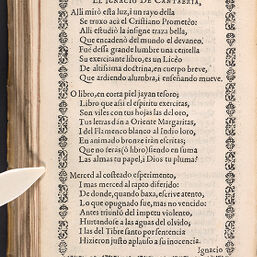 EL IGNACIO DE CANTABRIA,
Alli mirò esta luz, i un rayo della
Se truxo acà el Cristiano Prometèo:
Alli estudiò la insigne traza bella,
Que encadenò del mundo el devaneo.
Fuè dessa grande lumbre una centella
Su exercitante libro, es un Licèo
De altissima dotrina, en cuerpo breve,
Que ardiendo alumbra, i enseñando mueve.
O libro, en corta piel jayan tesoro;
Libro que assi el espiritu exercitas,
Son viles con tus hojas las del oro,
Tus letras dàn a Oriente Margaritas,
I del Flamenco blanco al Indio loro,
En animado bronze iràn escritas;
Que no seràs (ô libro) siendo en suma
Las almas tu papel, i Dios tu pluma?
Merced al costeado esperimento,
I mas merced al rapto diferido:
De donde, quando baxa, escrive atento,
Lo que opugnado fue, mas no vencido:
Antes triunfò del impetu violento,
Hurtandose a las aguas del olvido;
I las del Tibre santo por sentencia
Hizieron justo aplauso a su inocencia.
Ignacio